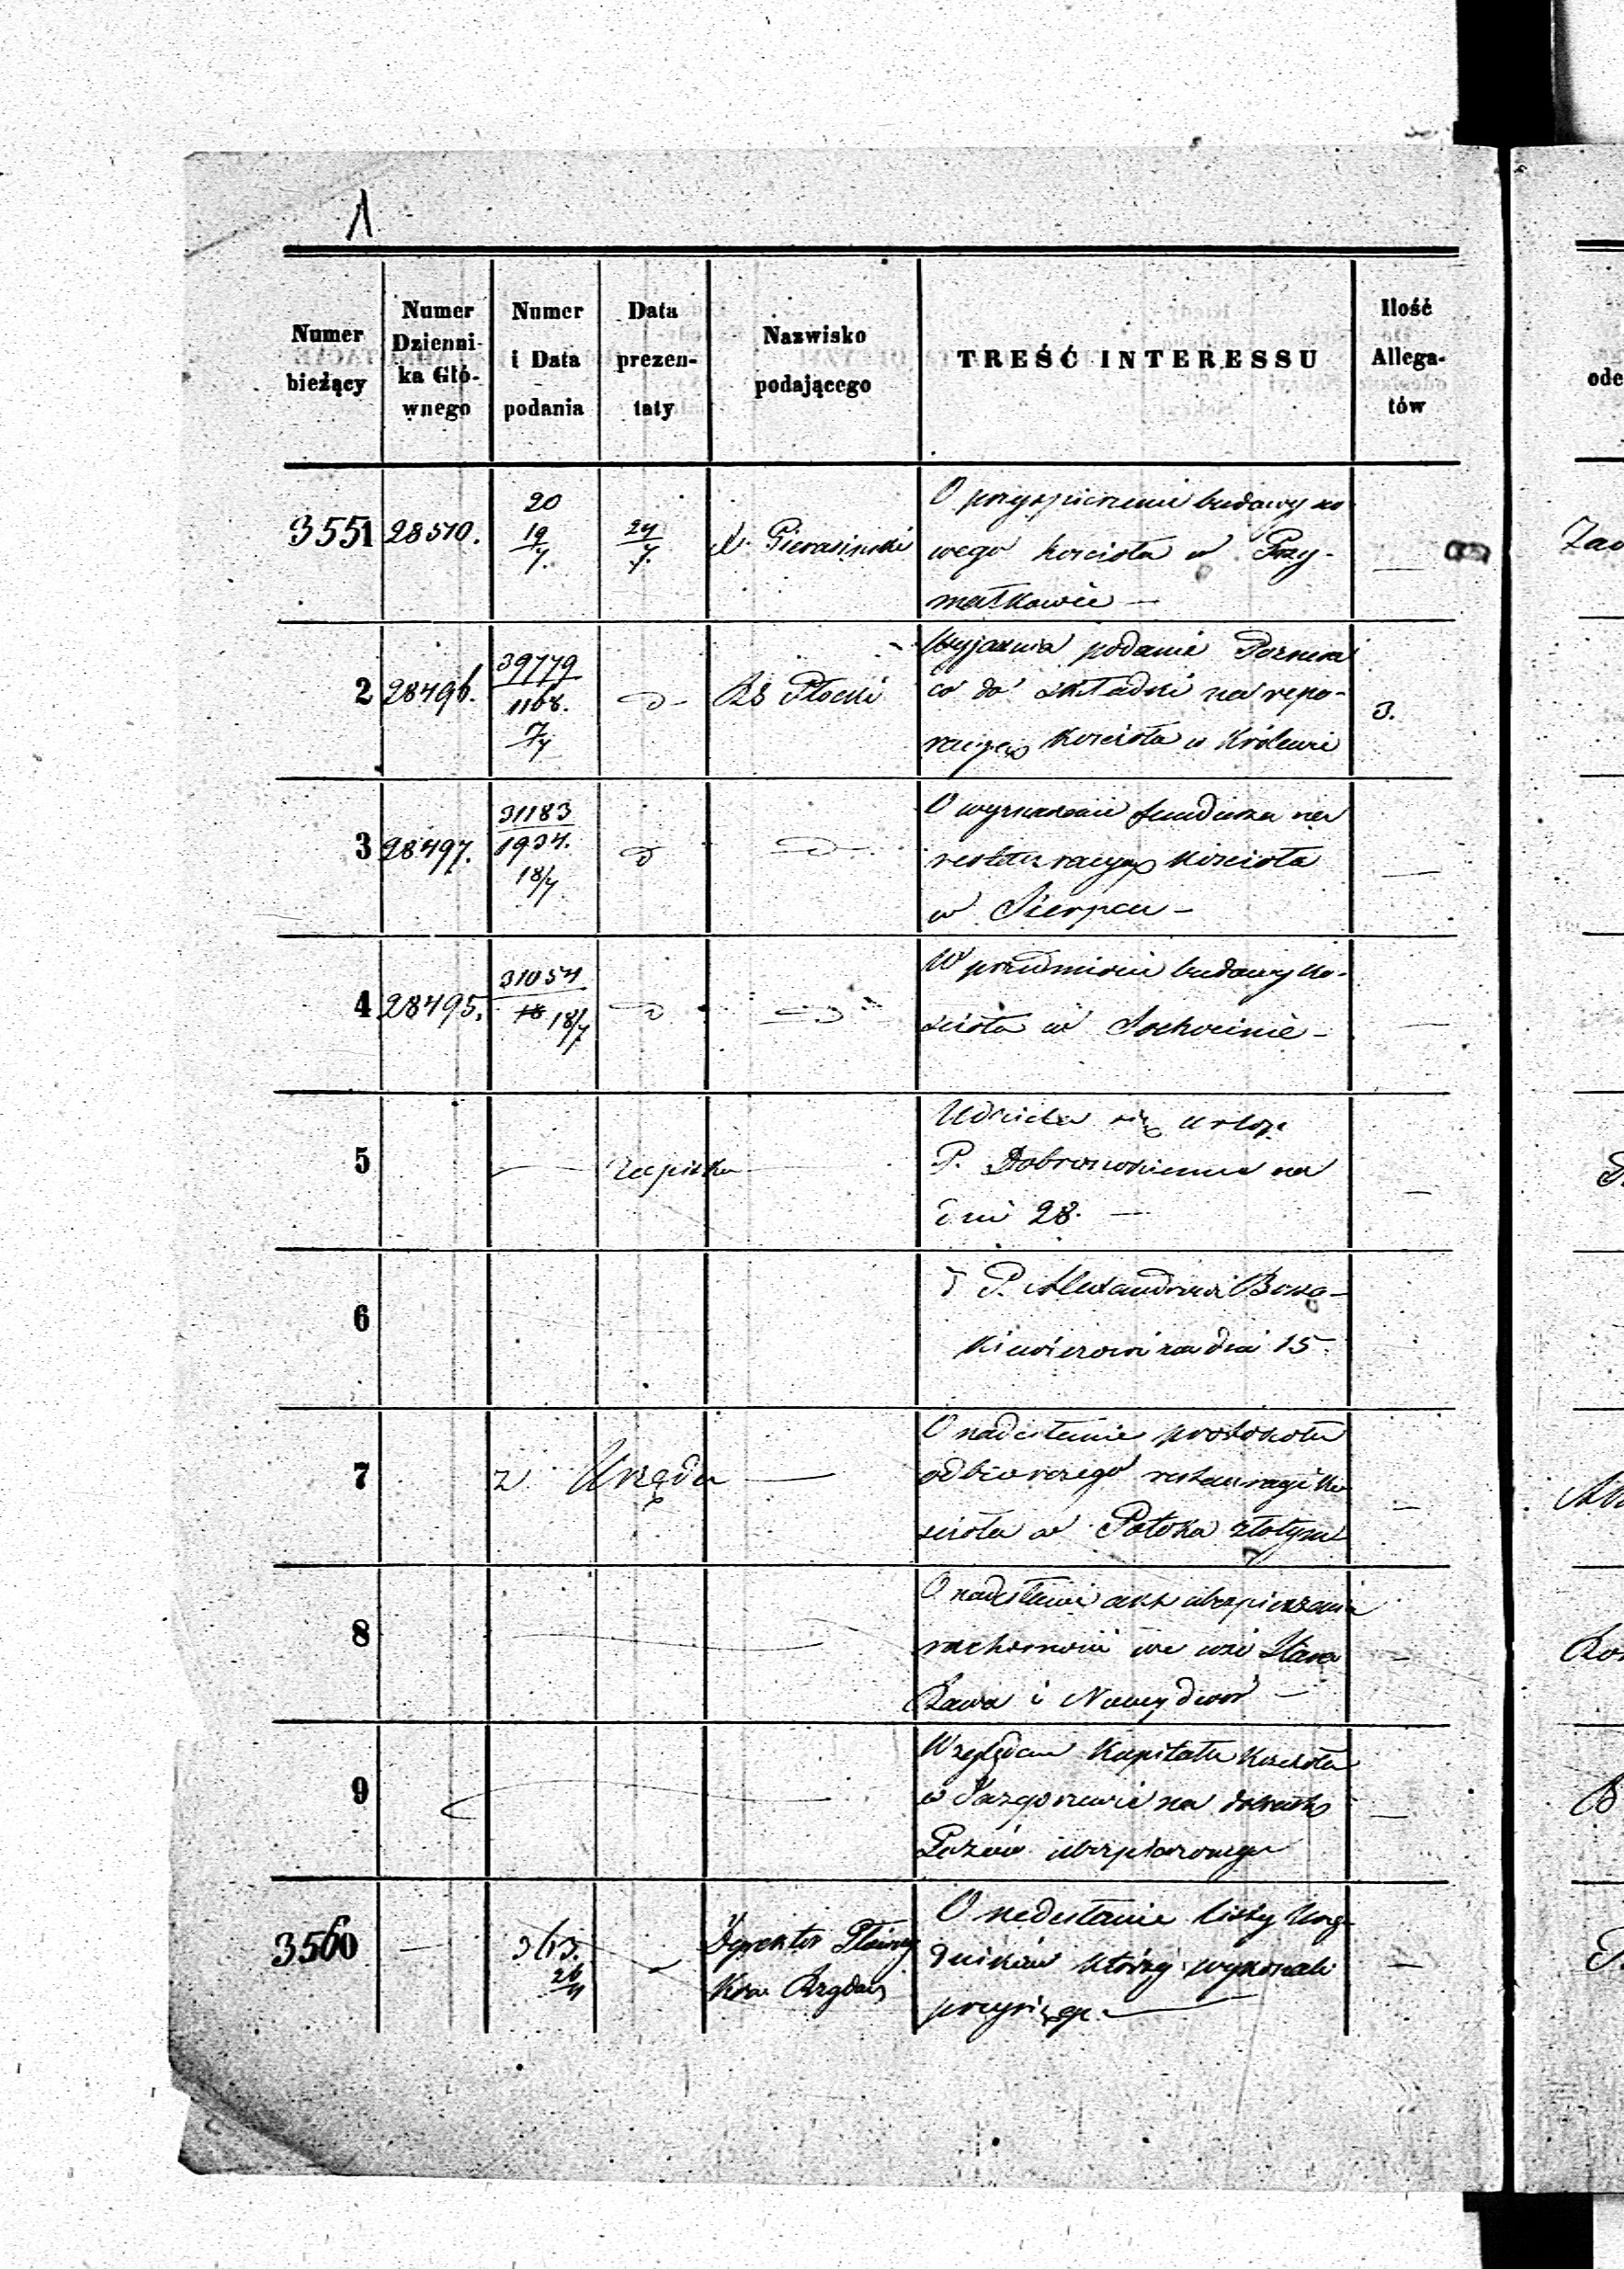 Numer bieżący | Numer Dzienni-ka Głó-wnego | Numer i Data podania | Data prezen-taty | Nazwisko podającego | TREŚĆ INTERESSU | Ilość Allega-tów
3551 28510. 20 19/7. 24/7. X. Pierasiński
O przyspieszenie budowy no-
wego kościoła w Przy-
małkowie —
2 28496. 39779 1168. 7/7 d- RG Płocki
Wyjaśnia podanie
co do składki na repa-
racyę kościoła w Królewie
3.
3 28497. 31183 1934. 18/7 d — d —
O wyznaczenie funduszu na
restauracyę kościoła
w Sierpcu —
4 28495. 31054 18/7 d — d —
W przedmiocie budowy ko-
ścioła w Sochocinie —
5 — Zapiska —
Udziela się urlop
P. Dobrowolskiemu na
dni 28. —
6
d P. Alexandrowi
na dni 15.
7 z Urzędu —
O nadesłanie protokołu
odbiorczego restauracyi ko
ścioła w Potoku złotym
8
O nadesłanie akt ubezpieczenia
ruchomości we wsi Stara
Rawa i Nowy dwór —
9
Względem Kapitału Kościoła
w na dobrach
ubezpieczonego
3560 — 363. 26/7
Dyrektor
Kan. Rządu
O nadesłanie listy Urzę-
dników którzy wykonali
przysięgę. —